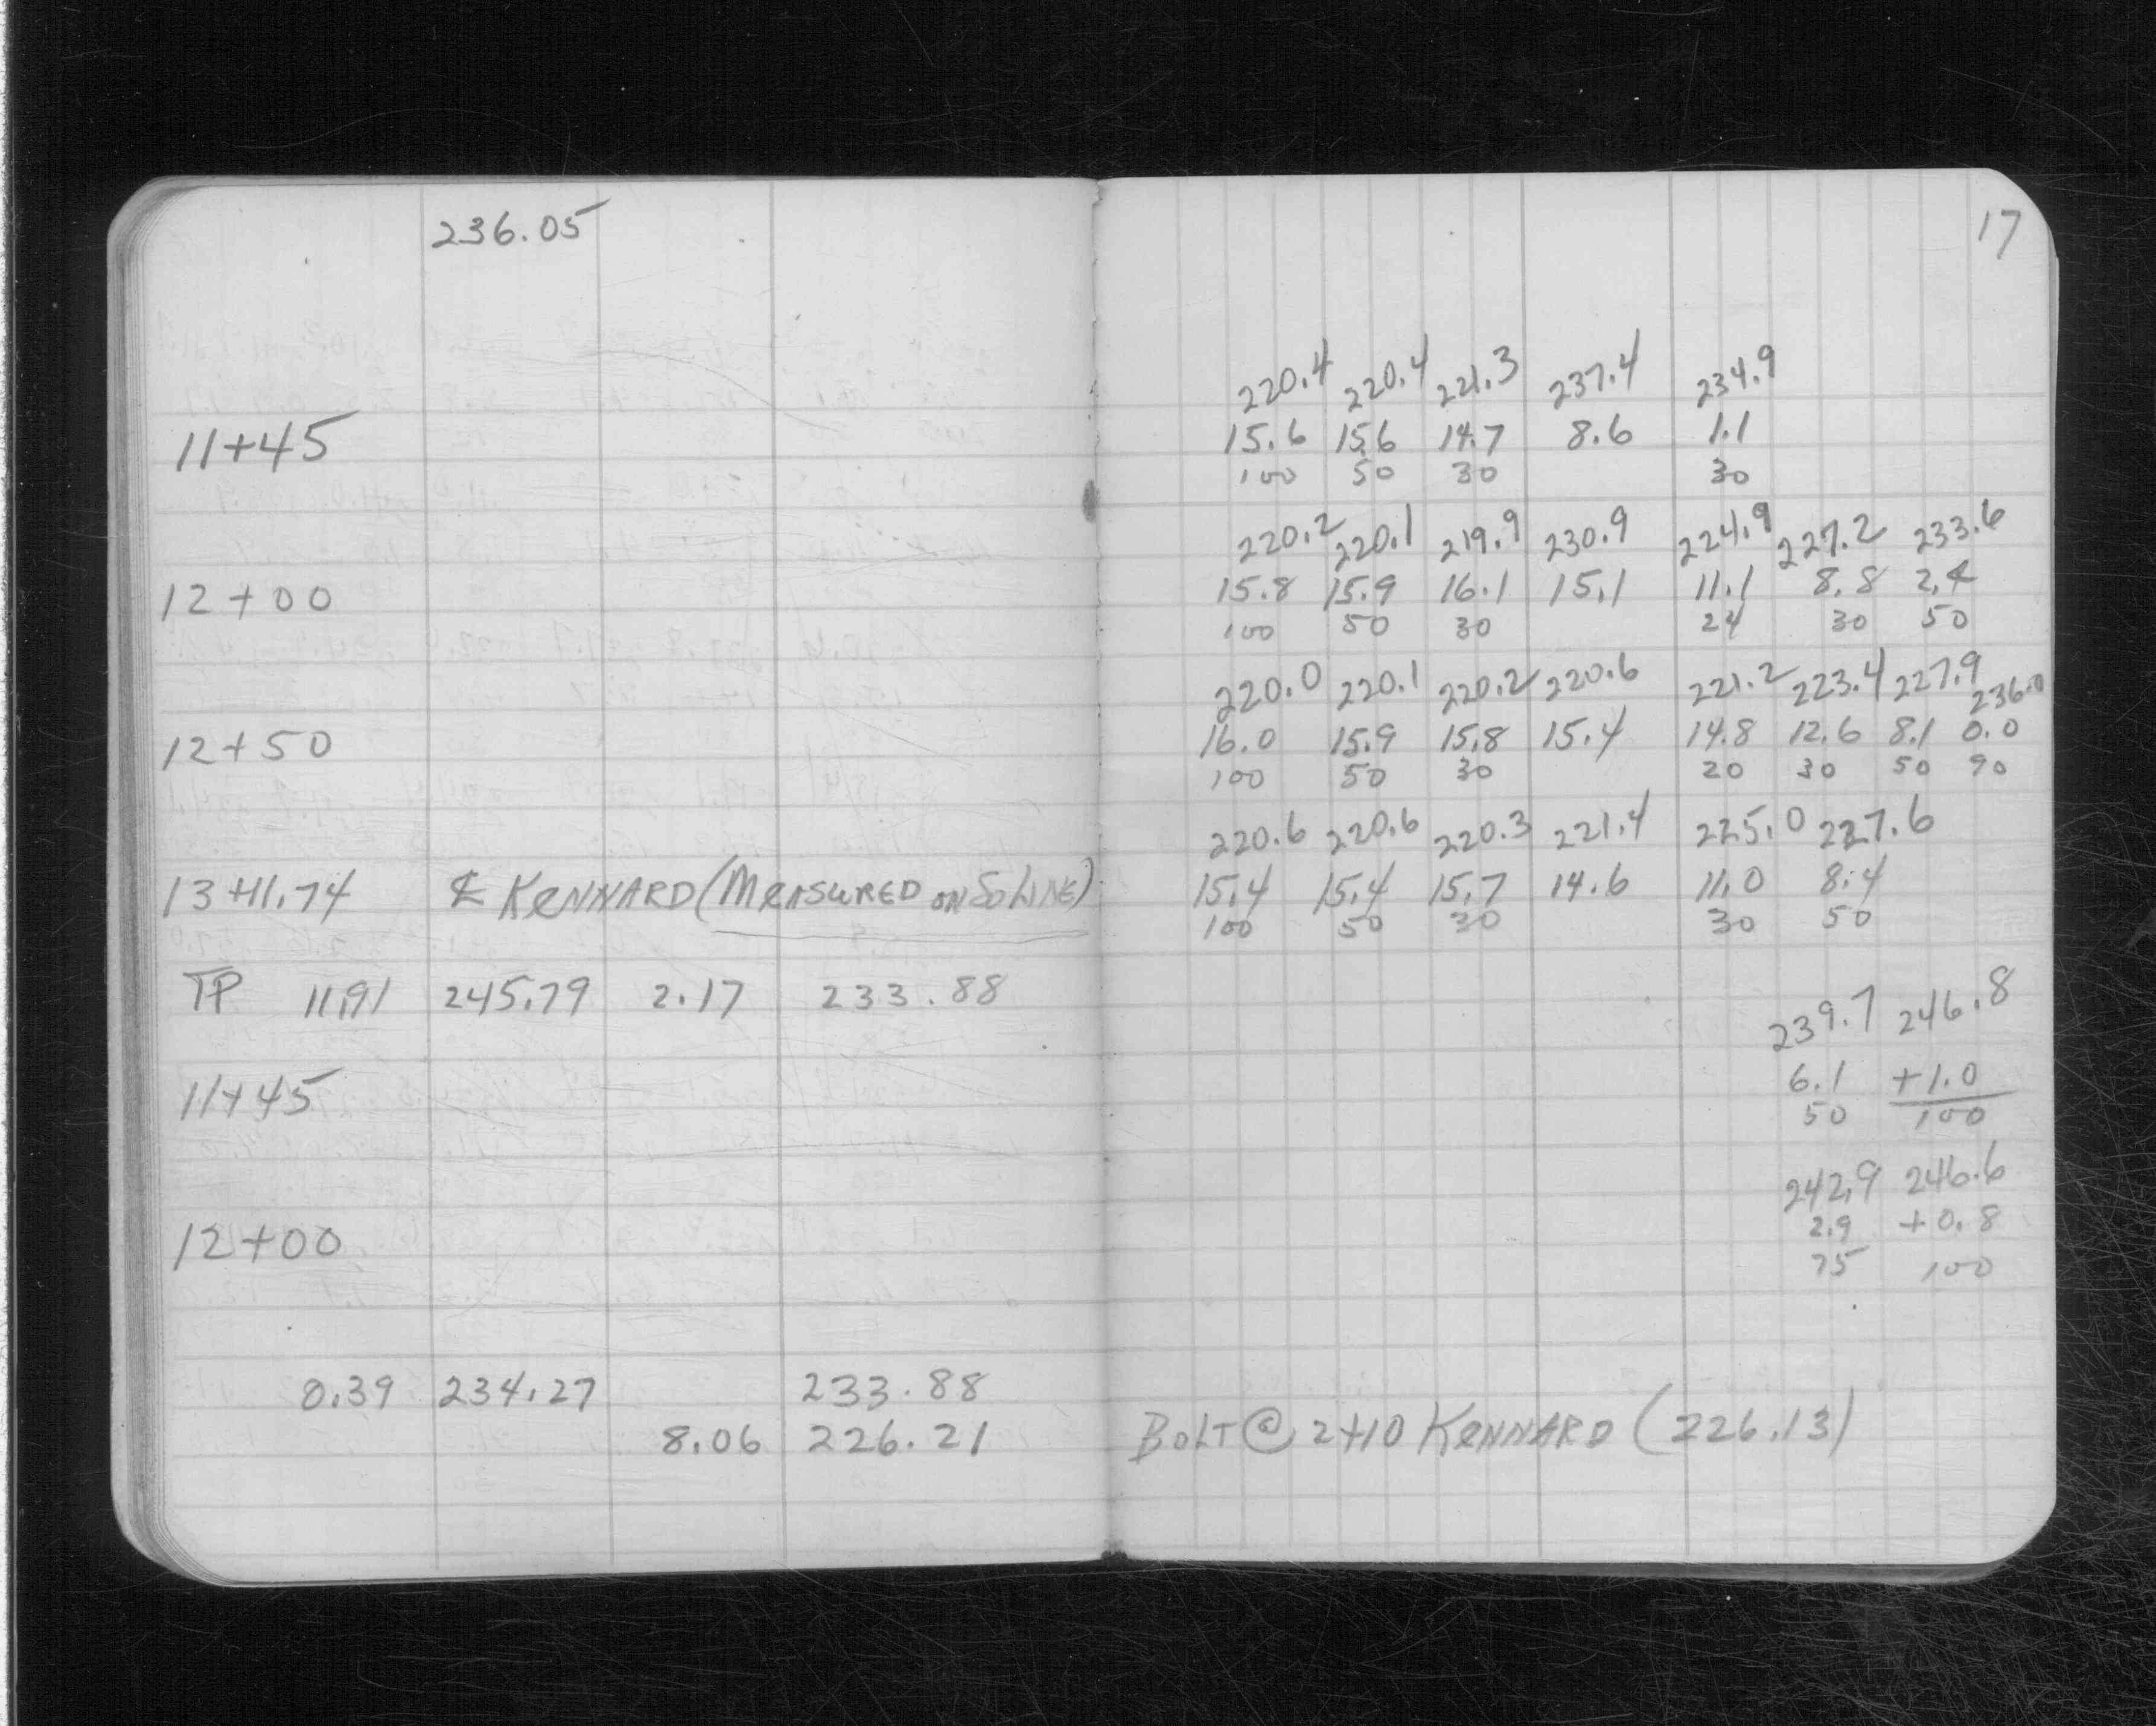 236.05
17
220.4 220.4 221.3 237.4 234.9
11+45 15.6 15.6 14.7 8.6 1.1
100 50 30 30
220.2 220.1 219.9 230.9 224.9 227.2 233.6
12+00 15.8 15.9 16.1 15.1 11.1 8.8 2.4
100 50 30 24 30 50
220.0 220.1 220.2 220.6 221.2 223.4 227.9 236.0
12+50 16.0 15.9 15.8 15.4 14.8 12.6 8.1 0.0
100 50 30 20 30 50 90
220.6 220.6 220.3 221.4 225.0 227.6
13+11.74 ℄ KENNARD (MEASURED ON SO LINE) 15.4 15.4 15.7 14.6 11.0 8.4
100 50 30 30 50
TP 11.91 245.79 2.17 233.88
239.7 246.8
11+45 6.1 +1.0
50 100
242.9 246.6
12+00 2.9 +0.8
75 100
0.39 234.27 233.88
8.06 226.21 BOLT @ 2+10 KENNARD (226.13)